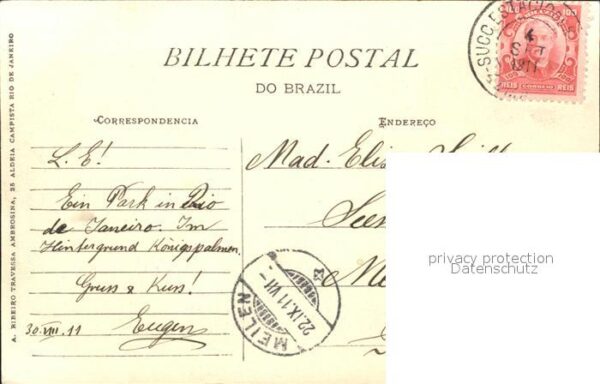 BILHETE POSTAL
DO BRAZIL
CORRESPONDENCIA
ENDEREÇO
A. RIBEIRO TRAVESSA AMBROSINA, 25 ALDEIA CAMPISTA RIO DE JANEIRO
SUCC. ESTACIO
4
SET
1911
100
100
100
REIS
CORREIO
REIS
L. E!
Ein Park in Rio
de Janeiro. Im
Hintergrund Königspalmen.
Gruss & Kuss!
Eugen
30.VIII.11
Mad. Elise
See
Me
MEILEN
22.IX.11 VII -
privacy protection
Datenschutz